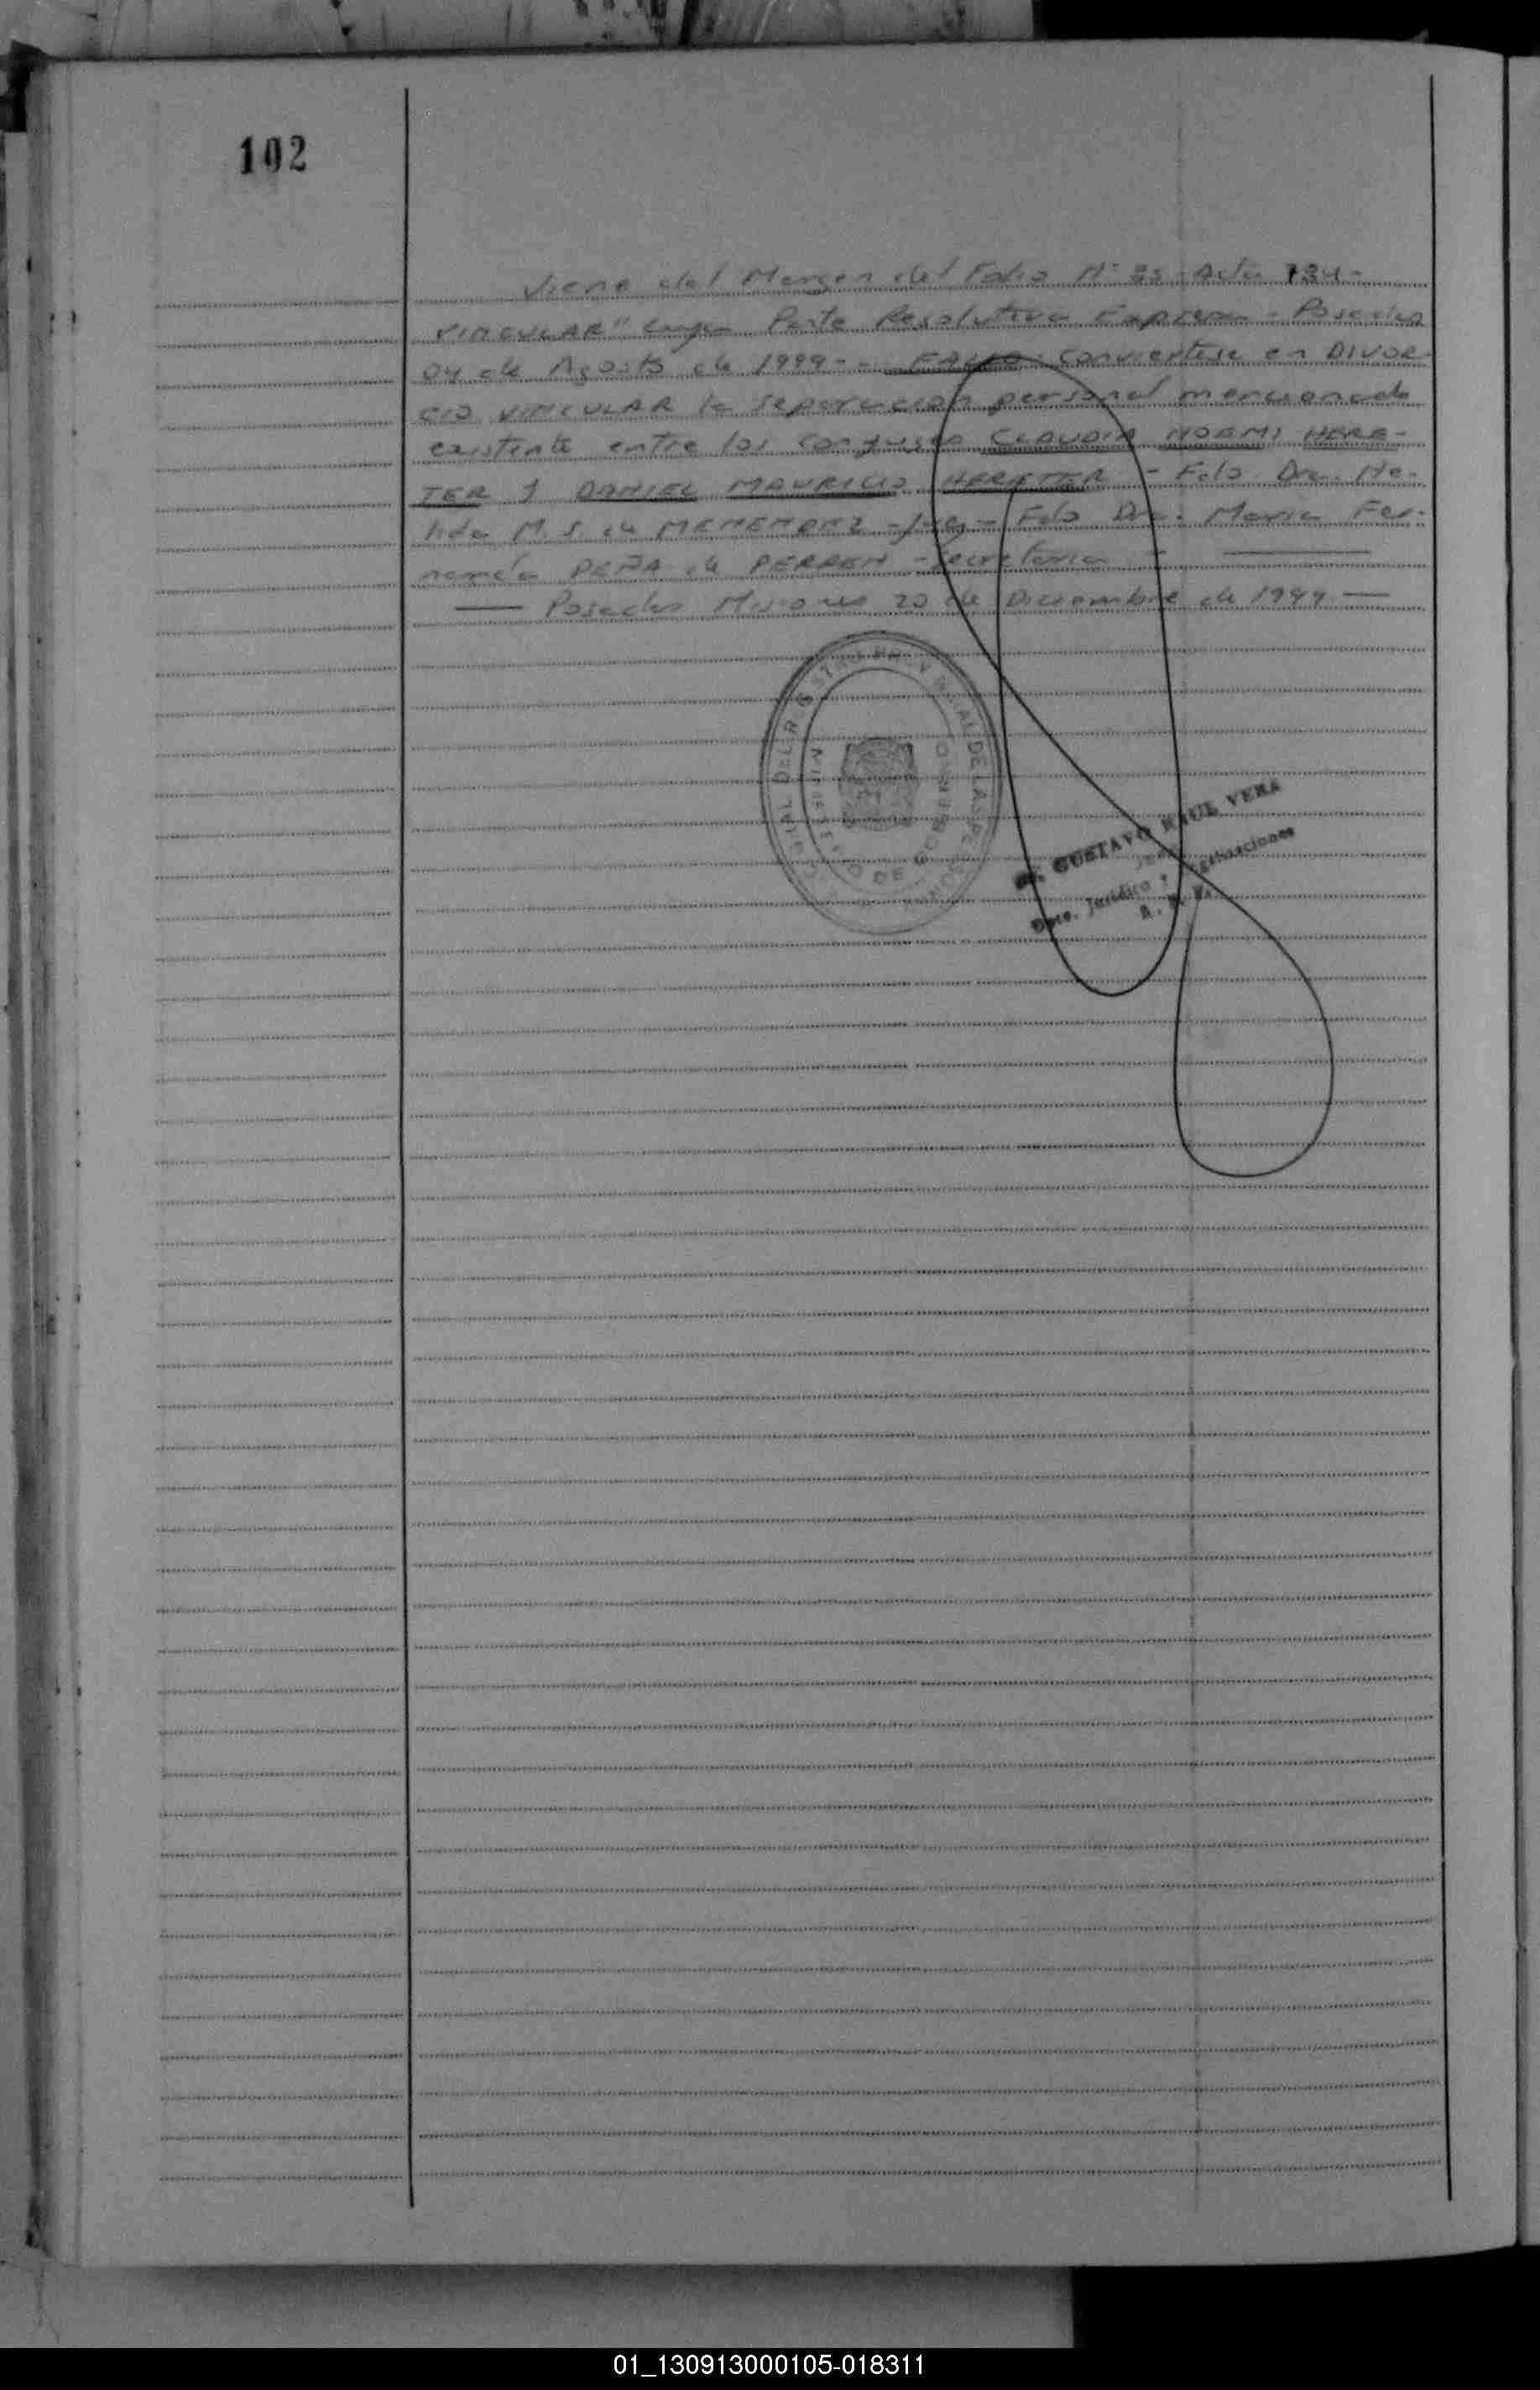 102
Viene del Margen del Folio Nº Acta 734-
VINCULAR" cuya Parte Resolutiva Expresa - Posadas
04 de Agosto de 1999 - - FALLO: Conviertese en DIVOR-
CIO VINCULAR la separacion personal mencionada
existente entre los conyuges CLAUDIA NOEMI HERE-
TER y DANIEL MAURICIO HERETER - Fdo. Dra. Ne-
lida M. S. de MENENDEZ - Juez - Fdo Dra. Maria Fer-
nanda PEÑA de PERREN - Secretaria -
Posadas Misiones 20 de Diciembre de 1999
MINISTERIO DE GOBIERNO
DEL REGISTRO PROVINCIAL DE LAS PERSONAS
Dr. GUSTAVO RAUL VERA
Dpto. Jurídico y
01_130913000105-018311